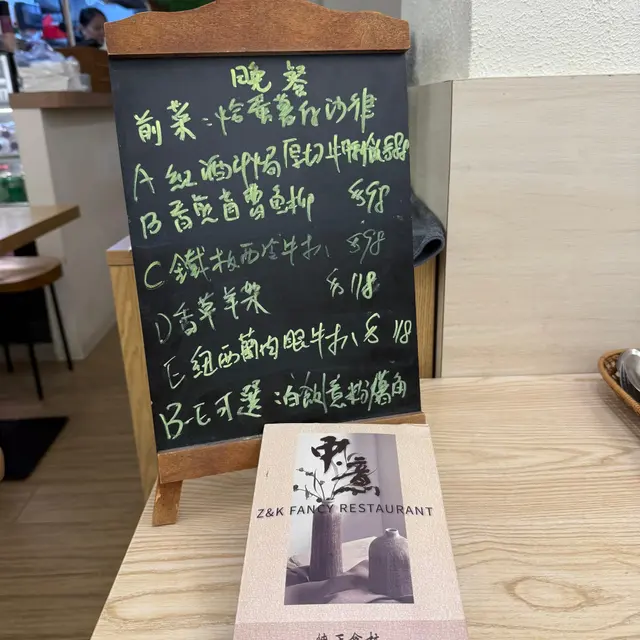 晚餐
前菜：烚蛋薯仔沙律
A 紅酒汁焗厚切牛脷飯 $98
B 香煎 魚柳 $98
C 鐵板西冷牛扒 $98
D 香草羊架 $118
E 紐西蘭肉眼牛扒 $118
B-E可選：白飯意粉薯角
中意
Z&K FANCY RESTAURANT